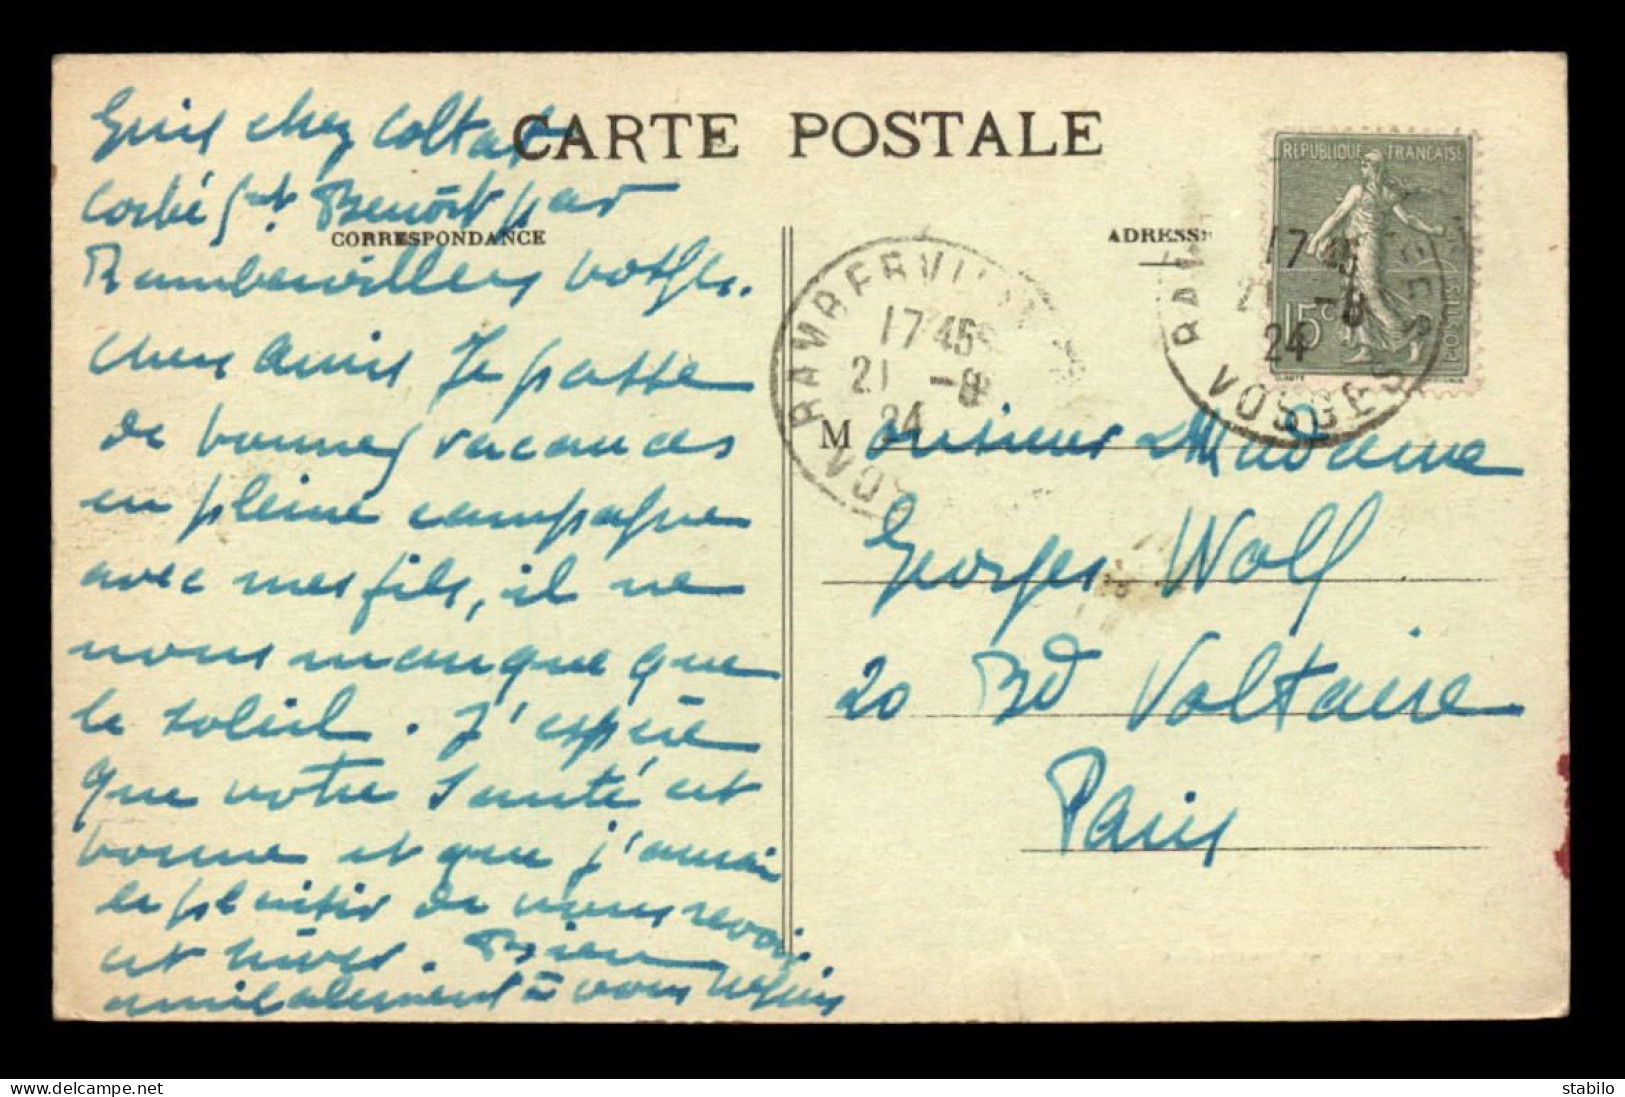 CARTE POSTALE
CORRESPONDANCE
chez Coltat
St Benoit par
Rambervillers Vosges.
Chers Amis Je passe
de bonnes vacances
en pleine campagne
avec mes fils, il ne
nous manque que
le soleil. J'espère
que votre santé est
bonne et que j'aurai
le plaisir de vous revoir
cet hiver. Bien
amicalement à vous
ADRESSE
RAMBERVILLERS
17 45
21 -8
24
VOSGES
REPUBLIQUE FRANÇAISE
15c
POSTES
RAMBERVILLERS
17 45
21 -8
24
VOSGES
Monsieur & Madame
Georges Wolf
20 Bd Voltaire
Paris
stabilo